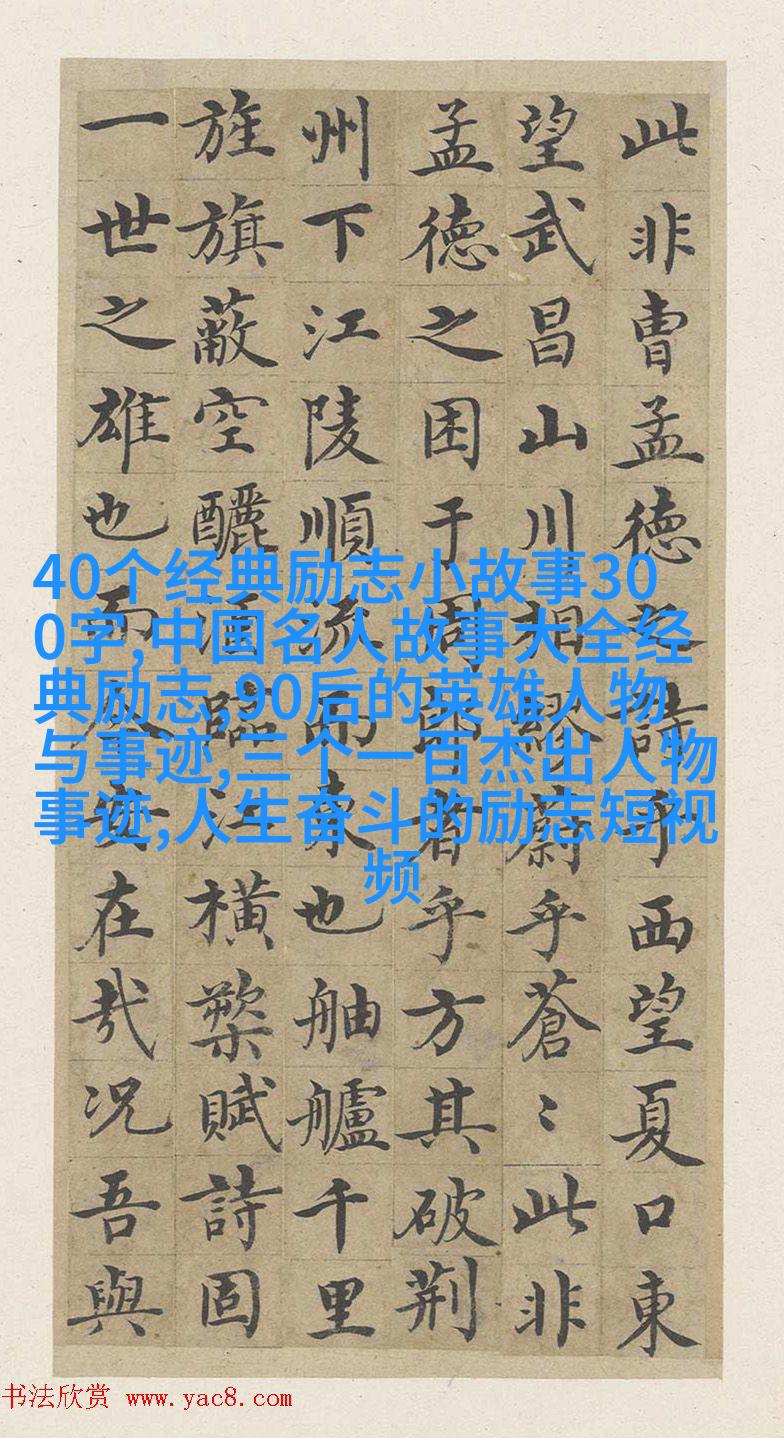 此非曹孟德之詩乎西望夏口東
望武昌山川相繆蔚乎蒼〻此非
孟德之困于周郎者乎方其破荆
州下江陵順流而東也舳艫千里
旌旗蔽空釃酒臨江橫槊賦詩固
一世之雄也而今安在哉况吾與
40个经典励志小故事30
0字,中国名人故事大全经
典励志,90后的英雄人物
与事迹,三个一百杰出人物
事迹,人生奋斗的励志短视
频
书法欣赏 www.yac8.com